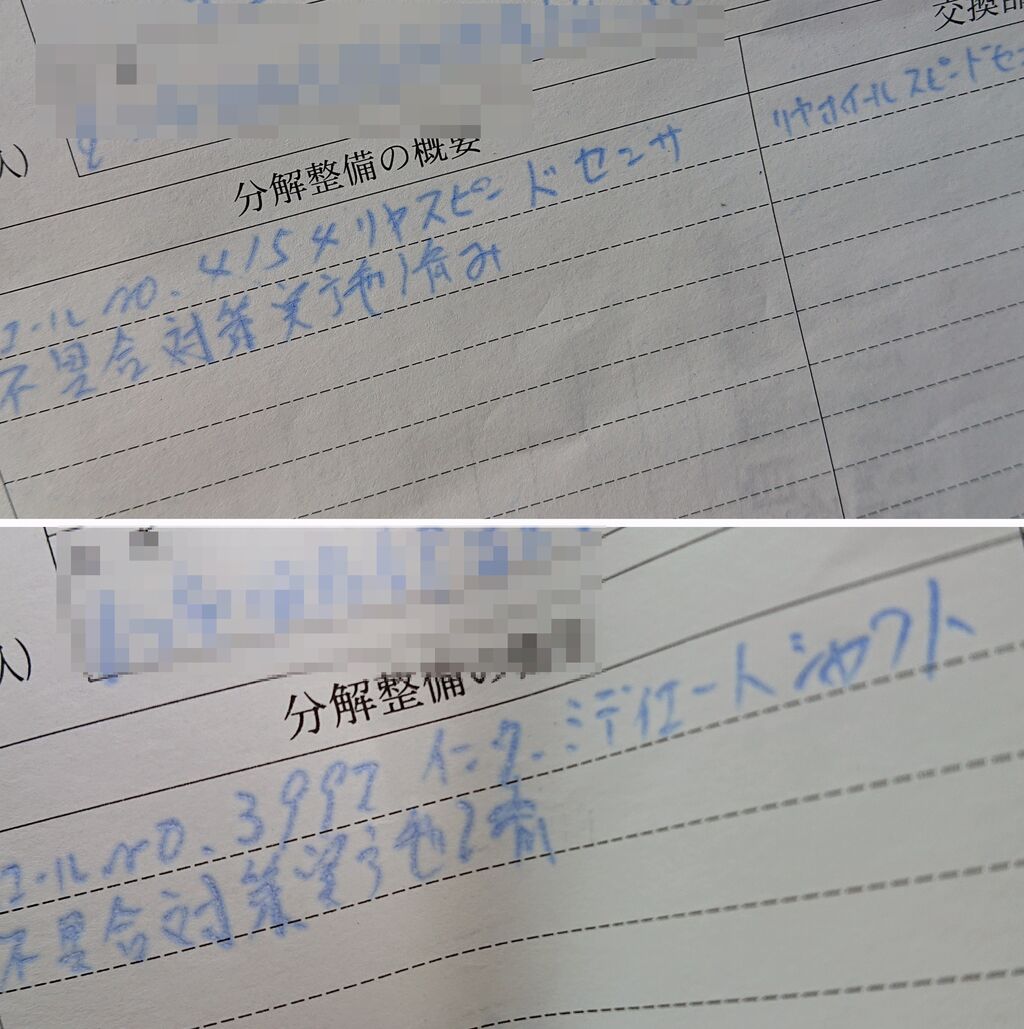 交換部
人)
分解整備の概要
リヤホイールスピードセン
コールNO.4154リヤスピードセンサ
不具合対策実施済み
人)
分解整備の
コールNO.3997 インターミディエートシャフト
不具合対策実施済